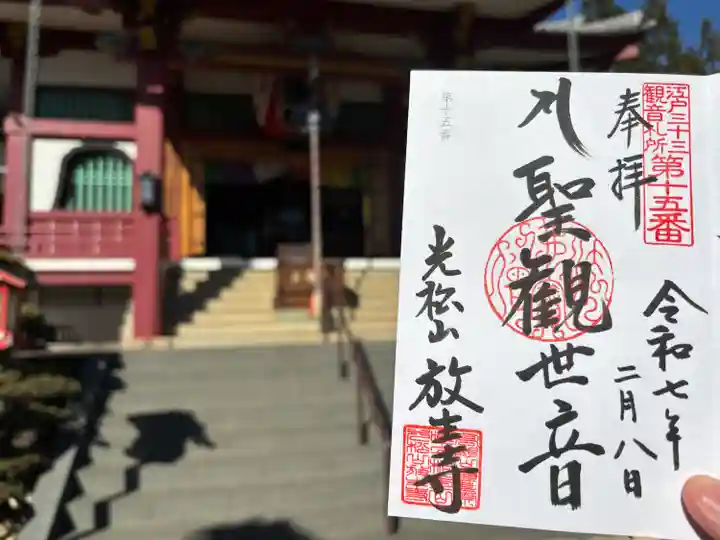 江戸三十三
観音札所
第十五番
奉拝
令和七年
二月八日
聖観世音
第十五番
光松山
放寿